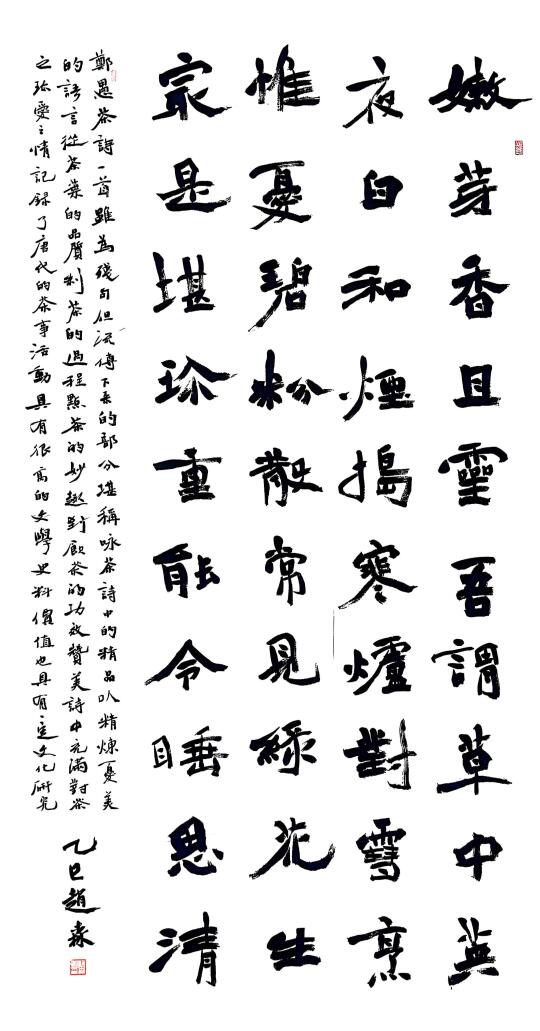 嫩芽香且靈吾謂草中英
夜臼和煙搗寒爐對雪烹
惟憂碧粉散常見綠花生
冣是堪珍重能令睡思清
鄭愚茶詩一首雖為殘句但流傳下來的部分堪稱咏茶詩中的精品以精煉憂美
的語言從茶葉的品質制茶的過程點茶的妙趣對飲茶的功效贊美詩中充滿對茶
之珍愛之情記錄了唐代的茶事活動具有很高的文學史料價值也具有一定文化研究
乙巳趙森